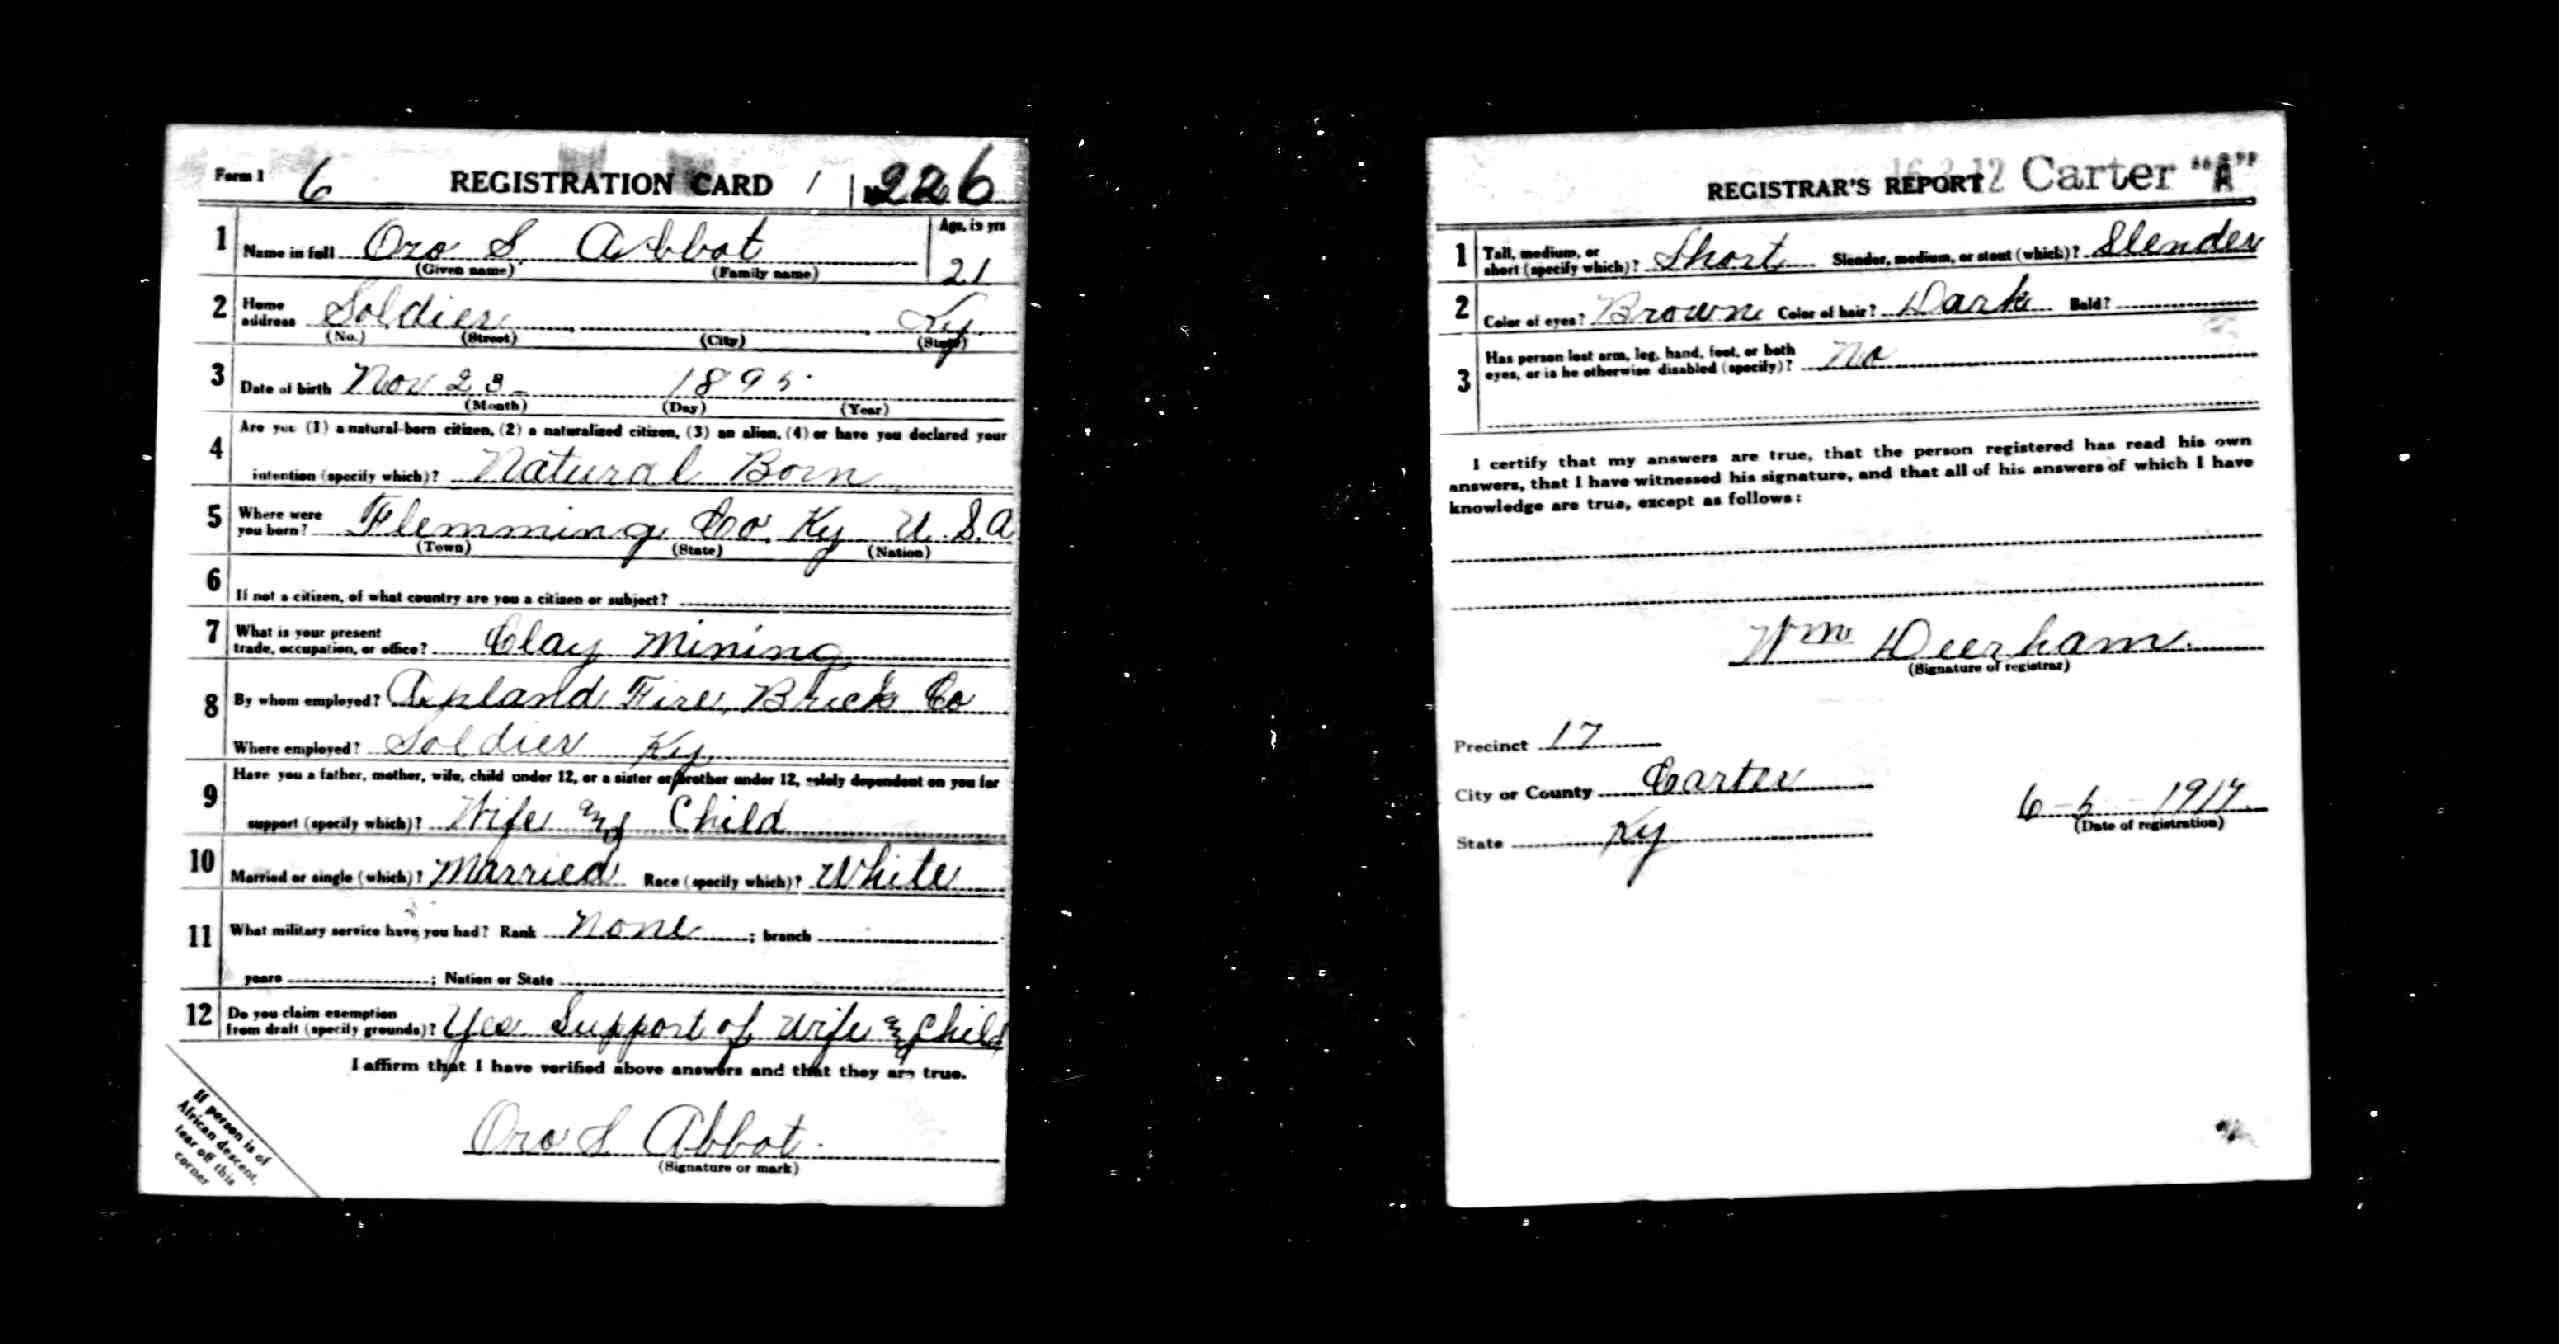 Form 1 6 REGISTRATION CARD 1 No. 226
1 Name in full Oro S. Abbot Age, in yrs
(Given name) (Family name) 21
2 Home address Soldier Ky.
(No.) (Street) (City) (State)
3 Date of birth Nov 23 1895
(Month) (Day) (Year)
4 Are you (1) a natural-born citizen, (2) a naturalized citizen, (3) an alien, (4) or have you declared your
intention (specify which)? Natural Born
5 Where were you born? Flemming Co. Ky U.S.A
(Town) (State) (Nation)
6 If not a citizen, of what country are you a citizen or subject?
7 What is your present trade, occupation, or office? Clay Mining
8 By whom employed? Fire Brick Co
Where employed? Soldier Ky
9 Have you a father, mother, wife, child under 12, or a sister or brother under 12, solely dependent on you for
support (specify which)? Wife and Child
10 Married or single (which)? Married Race (specify which)? White
11 What military service have you had? Rank None ; branch
years ; Nation or State
12 Do you claim exemption from draft (specify grounds)? Yes Support of Wife and Child
I affirm that I have verified above answers and that they are true.
Oro S Abbot.
(Signature or mark)
If person is of
African descent,
tear off this
corner
REGISTRAR'S REPORT 16-3-12 Carter "A"
1 Tall, medium, or short (specify which)? Short Slender, medium, or stout (which)? Slender
2 Color of eyes? Brown Color of hair? Dark Bald?
3 Has person lost arm, leg, hand, foot, or both
eyes, or is he otherwise disabled (specify)? No
I certify that my answers are true, that the person registered has read his own
answers, that I have witnessed his signature, and that all of his answers of which I have
knowledge are true, except as follows:
Wm Deerham.
(Signature of registrar)
Precinct 17
City or County Carter
State Ky
6-5 1917
(Date of registration)